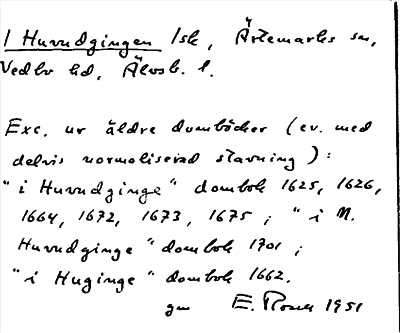 1 Huvudgingen Isk, Ärtemarks sn,
Vedbo hd, Älvsb. l.
Exc. ur äldre domböcker (ev. med
delvis normaliserad stavning):
"i Huvudginge" dombok 1625, 1626,
1664, 1672, 1673, 1675; "i N.
Huvudginge" dombok 1701;
"i Huginge" dombok 1662.
gm E. 1951